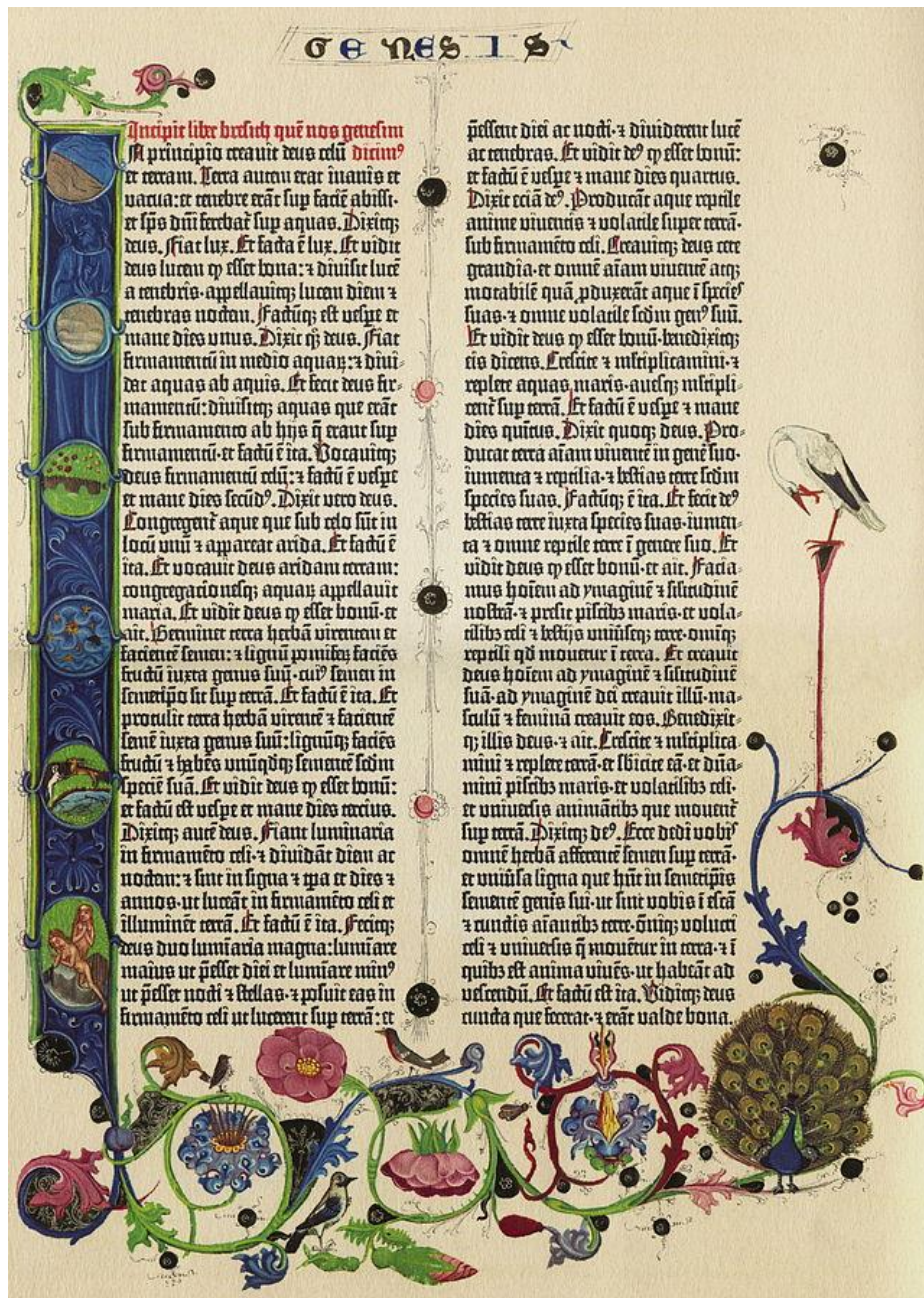 GENESIS
Incipit liber bresith quē nos genesim
In principio creavit deus celū dicim⁹
et terram. Terra autem erat inanis et
vacua: et tenebre erāt sup faciē abissi:
et sp̄s dn̄i ferebat̄ sup aquas. Dixitqꝫ
deus. Fiat lux. Et facta ē lux. Et vidit
deus lucem ꝙ esset bona: ⁊ divisit lucē
a tenebris·appellavitqꝫ lucem diem ⁊
tenebras noctem. Factūqꝫ est vespe et
mane dies unus. Dixit qꝫ deus. Fiat
firmamentū in medio aquaꝝ: ⁊ divi-
dat aquas ab aquis. Et fecit deus fir-
mamentū: divisitqꝫ aquas que erāt
sub firmamento ab hijs q̄ erant sup
firmamentū·et factū ē ita. Vocavitqꝫ
deus firmamentū celū: ⁊ factū ē vespe
et mane dies secūd⁹. Dixit vero deus.
Congregent̄ aque que sub celo sūt in
locū unū ⁊ appareat arida. Et factū ē
ita. Et vocavit deus aridam terram:
congregacionesqꝫ aquaꝝ appellavit
maria. Et vidit deus ꝙ esset bonū·et
ait. Germinet terra herbā virentem et
facientē semen: ⁊ lignū pomiferꝫ faciēs
fructū iuxta genus suū·cui⁹ semen in
semetip̄o sit sup terrā. Et factū ē ita. Et
protulit terra herbā virentē ⁊ facientē
semē iuxta genus suū: lignūqꝫ faciēs
fructū ⁊ habēs unūqdqꝫ sementē scdm
speciē suā. Et vidit deus ꝙ esset bonū:
et factū est vespe et mane dies tercius.
Dixitqꝫ autē deus. Fiant luminaria
in firmamēto celi·⁊ dividāt diem ac
noctem: ⁊ sint in signa ⁊ tp̄a et dies ⁊
annos·ut luceāt in firmamēto celi et
illuminēt terrā. Et factū ē ita. Fecitqꝫ
deus duo luminaria magna: lumīare
maius ut p̄esset diei et lumīare min⁹
ut p̄esset nocti ⁊ stellas·⁊ posuit eas in
firmamēto celi ut lucerent sup terrā: et
p̄essent diei ac nocti·⁊ dividerent lucē
ac tenebras. Et vidit de⁹ ꝙ esset bonū:
et factū ē vespe ⁊ mane dies quartus.
Dixit eciā de⁹. Producāt aque reptile
anime viventis ⁊ volatile super terrā·
sub firmamēto celi. Creavitqꝫ deus cete
grandia·et omnē aīam viventē atqꝫ
motabilē quā ꝓduxerāt aque ī species
suas·⁊ omne volatile scdm gen⁹ suū.
Et vidit deus ꝙ esset bonū·benedixitqꝫ
eis dicens. Crescite ⁊ mltiplicamini·⁊
replete aquas maris·avesqꝫ mltipli-
cent̄ sup terrā. Et factū ē vespe ⁊ mane
dies quītus. Dixit quoqꝫ deus. Pro-
ducat terra aīam viventē in genē suo·
iumenta ⁊ reptilia·⁊ bestias terre scdm
species suas. Factūqꝫ ē ita. Et fecit de⁹
bestias terre iuxta species suas·iumen-
ta ⁊ omne reptile terre ī genere suo. Et
vidit deus ꝙ esset bonū·et ait. Facia-
mus hoīem ad ymaginē ⁊ silitudinē
nostrā·⁊ presit piscibꝫ maris·et vola-
tilibꝫ celi ⁊ bestijs univseqꝫ terre·omīqꝫ
reptili qd movetur ī terra. Et creavit
deus hoīem ad ymaginē ⁊ silitudinē
suā·ad ymaginē dei creavit illū·ma-
sculū ⁊ feminā creavit eos. Benedixit-
qꝫ illis deus·⁊ ait. Crescite ⁊ mltiplica-
mini ⁊ replete terrā·et sbicite eā·et dn̄a-
mini piscibꝫ maris·et volatilibꝫ celi·
et universis animātibꝫ que movent̄
sup terrā. Dixitqꝫ de⁹. Ecce dedi vobis
omnē herbā afferentē semen sup terrā·
et univsa ligna que hn̄t in semetip̄is
sementē genīs sui·ut sint vobis ī escā
⁊ cunctis aīantibꝫ terre·om̄iqꝫ volucri
celi ⁊ universis q̄ movētur in terra·⁊ ī
quibꝫ est anima vivēs·ut habeāt ad
vescendū. Et factū est ita. Viditqꝫ deus
cuncta que fecerat·⁊ erāt valde bona.